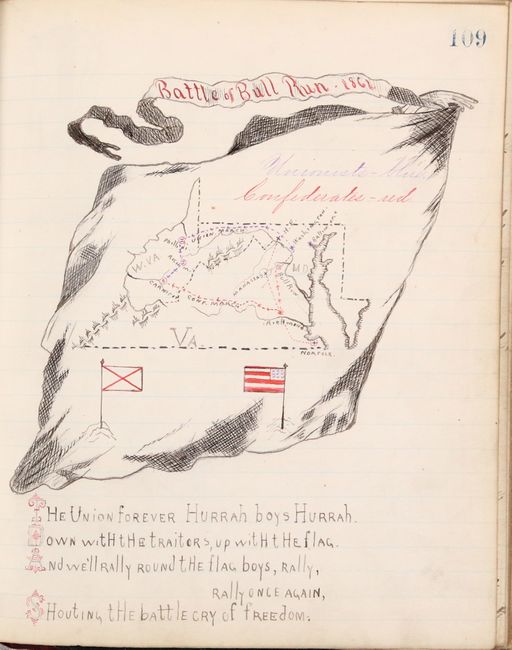 109
Battle of Bull Run - 1861
Unionists - blue
Confederates - red
Union March
W. VA
MD
Manassas
Confd March
Richmond
VA
Norfolk
The Union forever Hurrah boys Hurrah.
Down with the traitors, up with the flag.
And we'll rally round the flag boys, rally,
rally once again,
Shouting the battle cry of freedom.